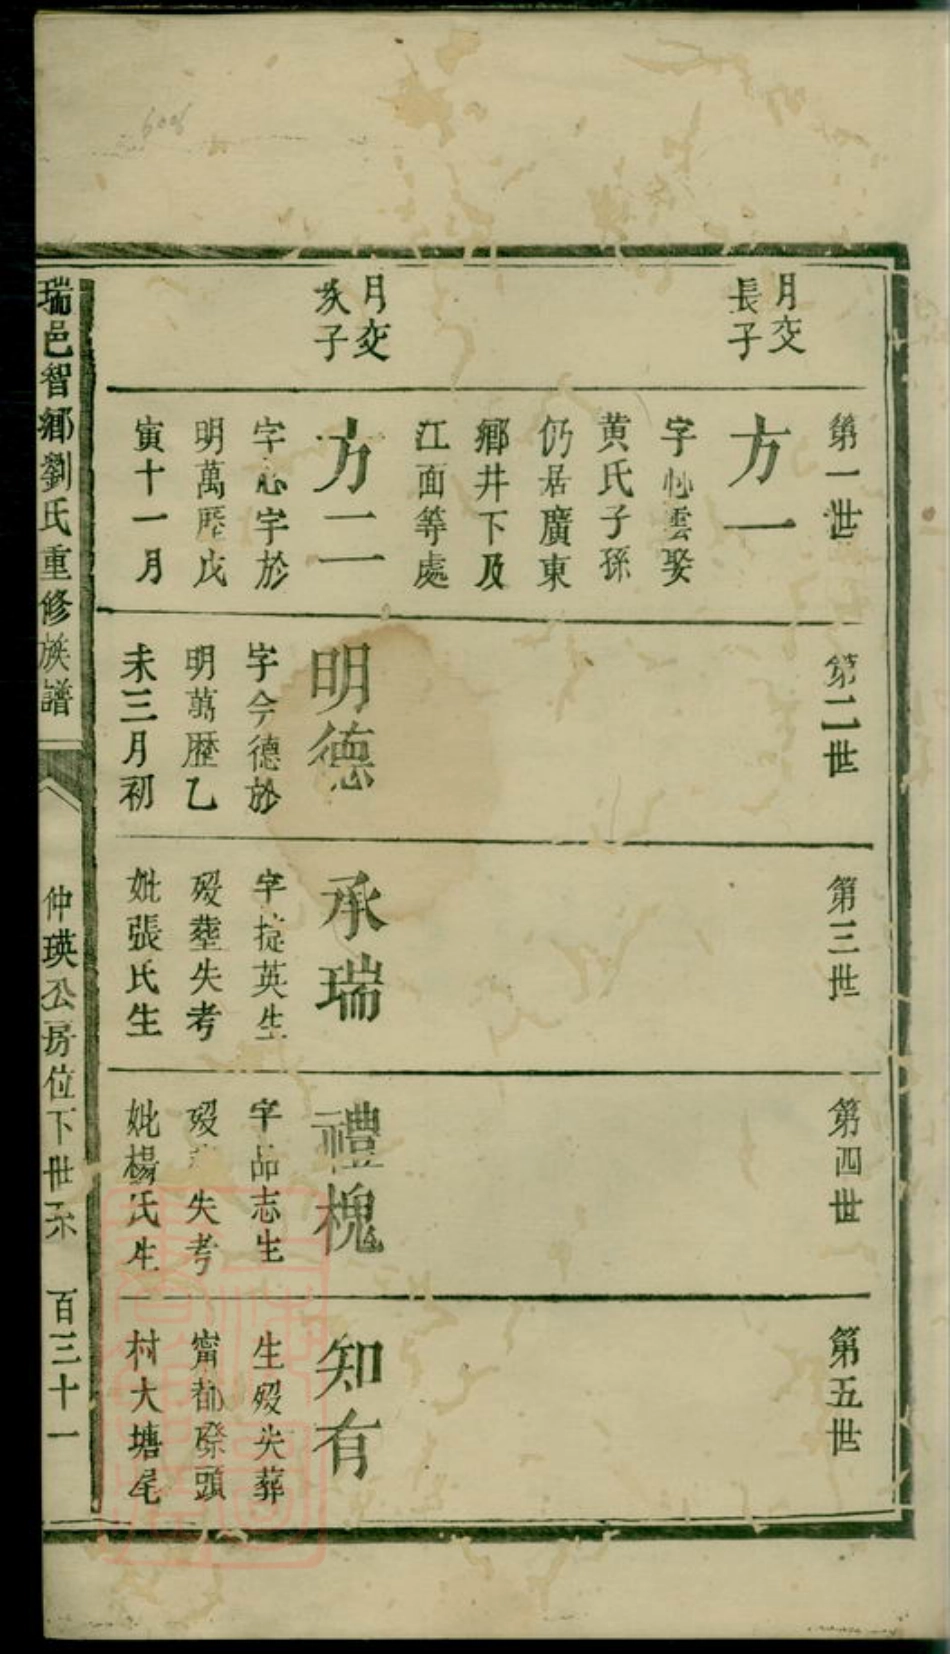 月交
長子
月交
次子
第一世
方一
字 雲娶
黄氏子孫
仍居廣東
鄉井下及
江面等處
方二
字心宇於
明萬歷戊
寅十一月
第二世
明德
字今德於
明萬歷乙
未三月初
第三世
承瑞
字挺英生
歿塟失考
妣張氏生
第四世
禮槐
字品志生
歿 失考
妣楊氏生
第五世
知有
生歿失葬
甯都 頭
村大塘尾
瑞邑智鄉劉氏重修族譜
仲瑛公房位下世系
百三十一